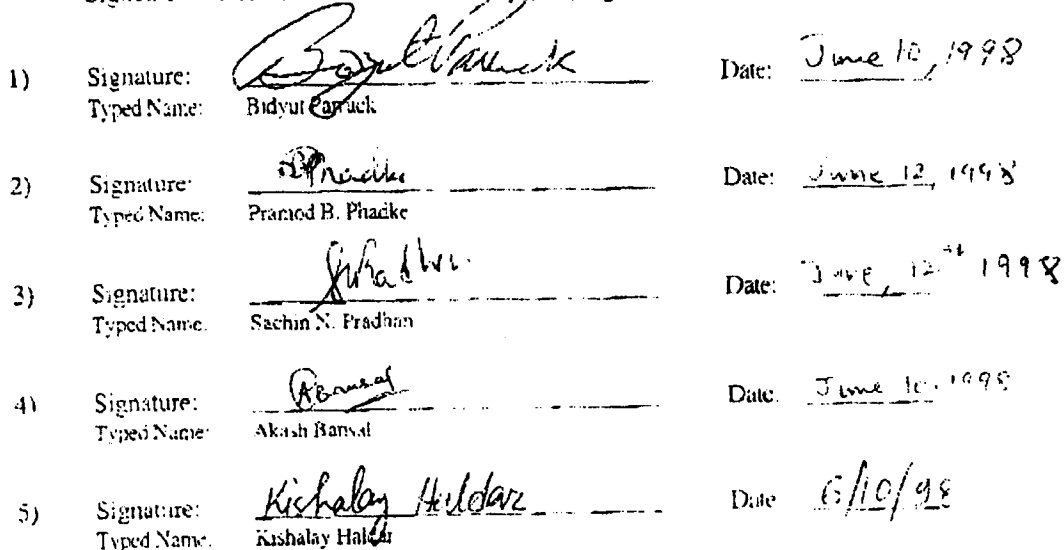 1) Signature: Bidyut Parruck Date: June 10, 1998
Typed Name: Bidyut Parruck
2) Signature: Phadke Date: June 12, 1998
Typed Name: Pramod B. Phadke
3) Signature: Date: June, 12th 1998
Typed Name: Sachin N. Pradhan
4) Signature: ABansal Date: June 10, 1998
Typed Name: Akash Bansal
5) Signature: Kishalay Haldar Date 6/10/98
Typed Name: Kishalay Haldar